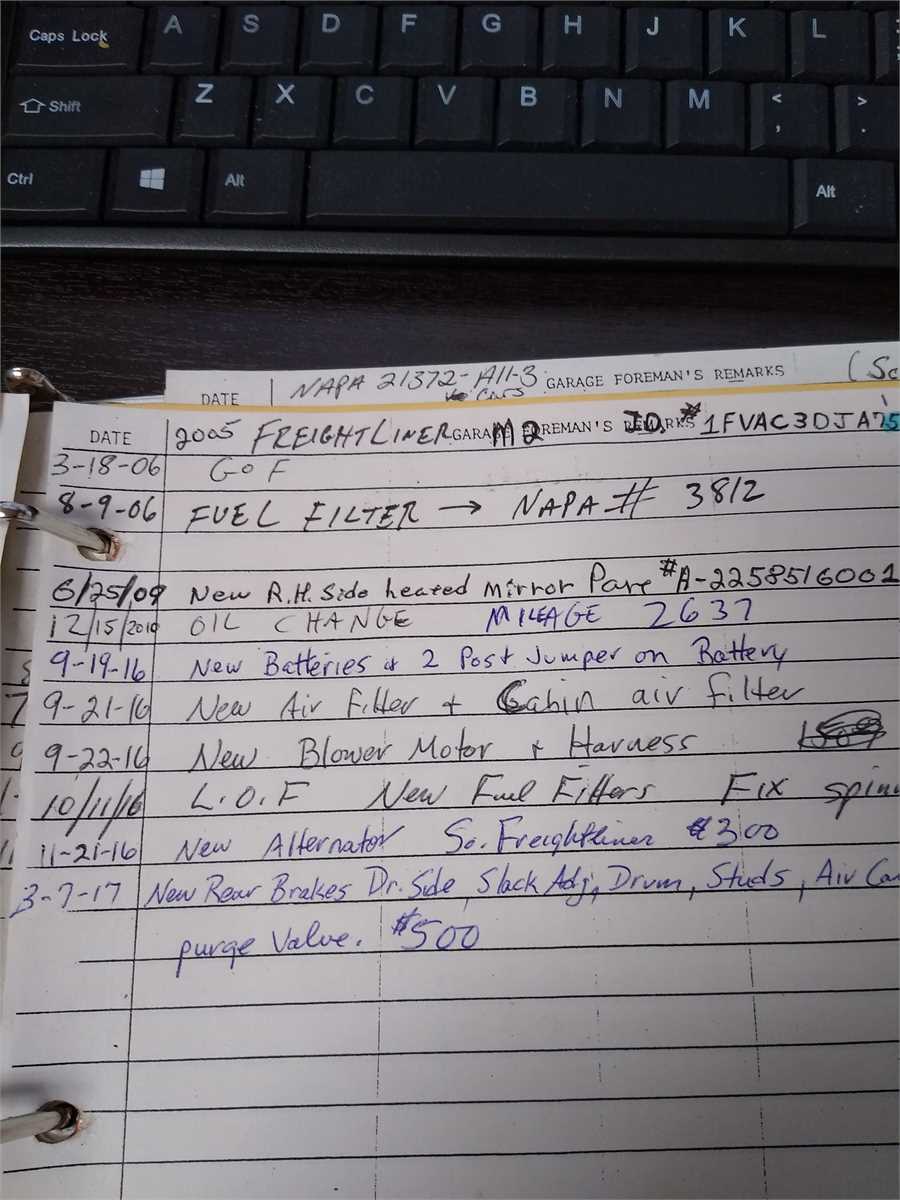 Caps Lock A S D F G H J K L
Shift Z X C V B N M < , > .
Ctrl Alt Alt
DATE NAPA 21372-A11-3 GARAGE FOREMAN'S REMARKS (Sc
DATE 2005 FREIGHTLINER M2 GARAGE FOREMAN'S REMARKS ID.# 1FVAC3DJA75
3-18-06 GOF
8-9-06 FUEL FILTER → NAPA # 3812
6/25/09 New R.H. Side heated Mirror Part #A-2258516001
12/15/2010 OIL CHANGE MILEAGE 2637
9-19-16 New Batteries & 2 Post Jumper on Battery
9-21-16 New Air Filter + Cabin air filter
9-22-16 New Blower Motor + Harness
10/11/16 L.O.F New Fuel Filters Fix spinn
11-21-16 New Alternator So. Freightliner $300
3-7-17 New Rear Brakes Dr. Side, Slack Adj, Drum, Studs, Air Can
purge Valve. $500